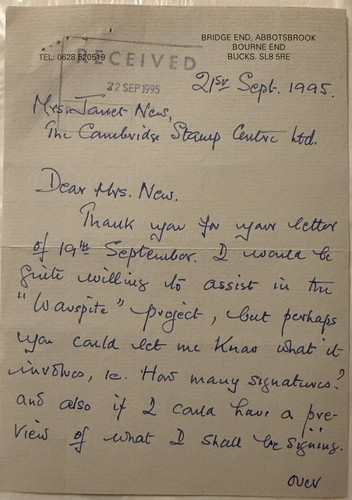 BRIDGE END, ABBOTSBROOK
BOURNE END
BUCKS. SL8 5RE
TEL: 0628 520519
RECEIVED
22 SEP 1995
21st Sept. 1995.
Mrs. Janet New,
The Cambridge Stamp Centre Ltd.
Dear Mrs. New.
Thank you for your letter
of 19th September. I would be
quite willing to assist in the
"Warspite" project, but perhaps
you could let me know what it
involves, ie. How many signatures?
and also if I could have a pre-
view of what I shall be signing.
over